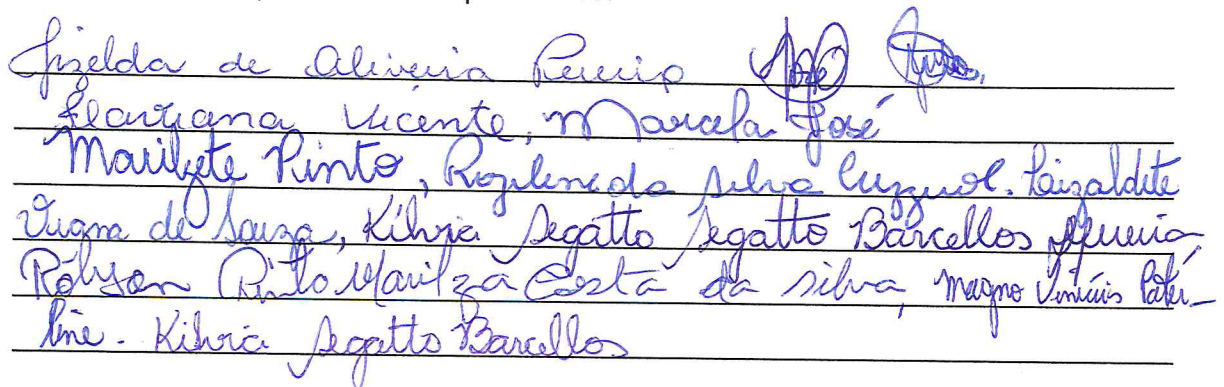 Gizelda de Oliveira Pereira José
Flaviana Vicente, Marcela José
Marilzete Pinto, Rozilene da Silva Cuzzuol. Laizaldite
Viana de Souza, Kilvia Segatto Segatto Barcellos Pereira
Róbson Pinto Marilza Costa da Silva, Magno Vinícius
line. Kilvia Segatto Barcellos